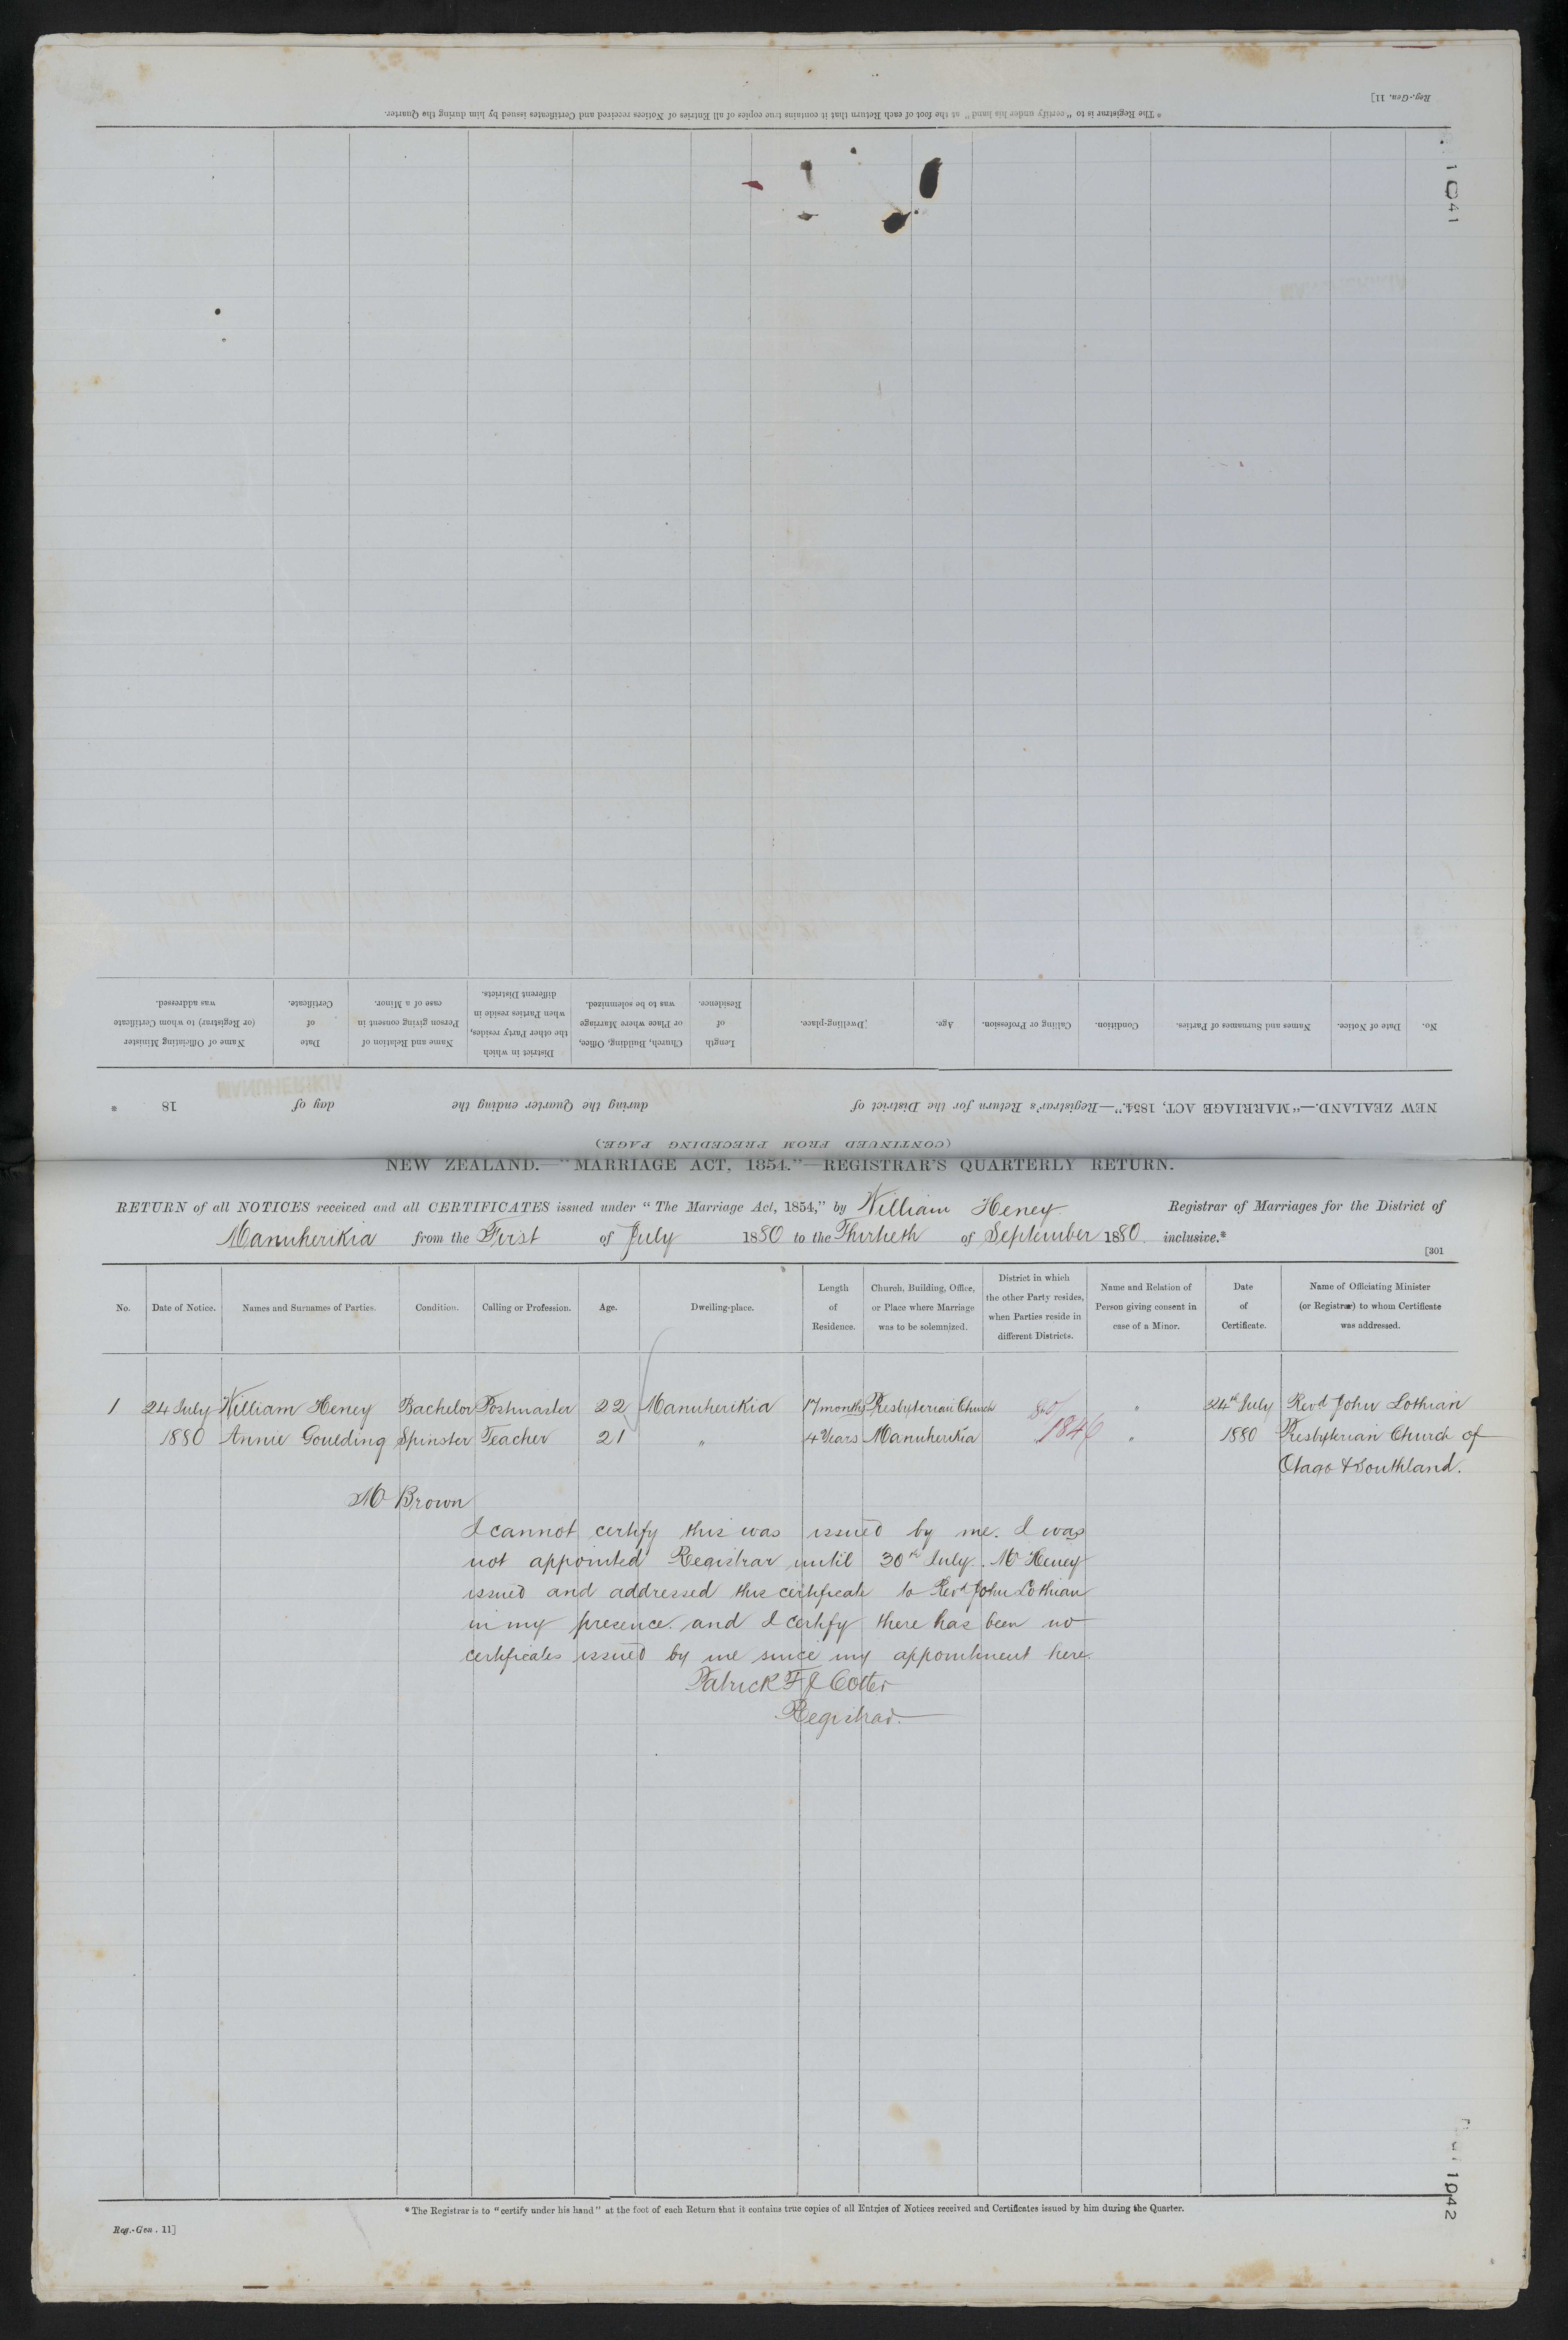 Reg.-Gen. 11]
* The Registrar is to "certify under his hand" at the foot of each Return that it contains true copies of all Entries of Notices received and Certificates issued by him during the Quarter.
1041
(CONTINUED FROM PRECEDING PAGE.)
NEW ZEALAND.—"MARRIAGE ACT, 1854."—Registrar's Return for the District of during the Quarter ending the day of 18
MANUHERIKIA
No. Date of Notice. Names and Surnames of Parties. Condition. Calling or Profession. Age. Dwelling-place. Length of Residence. Church, Building, Office, or Place where Marriage was to be solemnized. District in which the other Party resides, when Parties reside in different Districts. Name and Relation of Person giving consent in case of a Minor. Date of Certificate. Name of Officiating Minister (or Registrar) to whom Certificate was addressed.
NEW ZEALAND.—"MARRIAGE ACT, 1854."—REGISTRAR'S QUARTERLY RETURN.
RETURN of all NOTICES received and all CERTIFICATES issued under "The Marriage Act, 1854," by William Heney Registrar of Marriages for the District of
Manuherikia from the First of July 1880 to the Thirtieth of September 1880 inclusive.*
[301
No. Date of Notice. Names and Surnames of Parties. Condition. Calling or Profession. Age. Dwelling-place. Length of Residence. Church, Building, Office, or Place where Marriage was to be solemnized. District in which the other Party resides, when Parties reside in different Districts. Name and Relation of Person giving consent in case of a Minor. Date of Certificate. Name of Officiating Minister (or Registrar) to whom Certificate was addressed.
1 24 July William Heney Bachelor Postmaster 22 Manuherikia 17 months Presbyterian Church 80/ " 24th July Revd John Lothian
1880 Annie Goulding Spinster Teacher 21 " 4 Years Manuherikia 1846 " 1880 Presbyterian Church of
Otago & Southland.
Mr Brown
I cannot certify this was issued by me. I was
not appointed Registrar until 30th July. Mr Heney
issued and addressed this certificate to Revd John Lothian
in my presence. and I certify there has been no
certificates issued by me since my appointment here.
Patrick F J Cotter
Registrar.
* The Registrar is to "certify under his hand" at the foot of each Return that it contains true copies of all Entries of Notices received and Certificates issued by him during the Quarter.
Reg.-Gen. 11]
1042